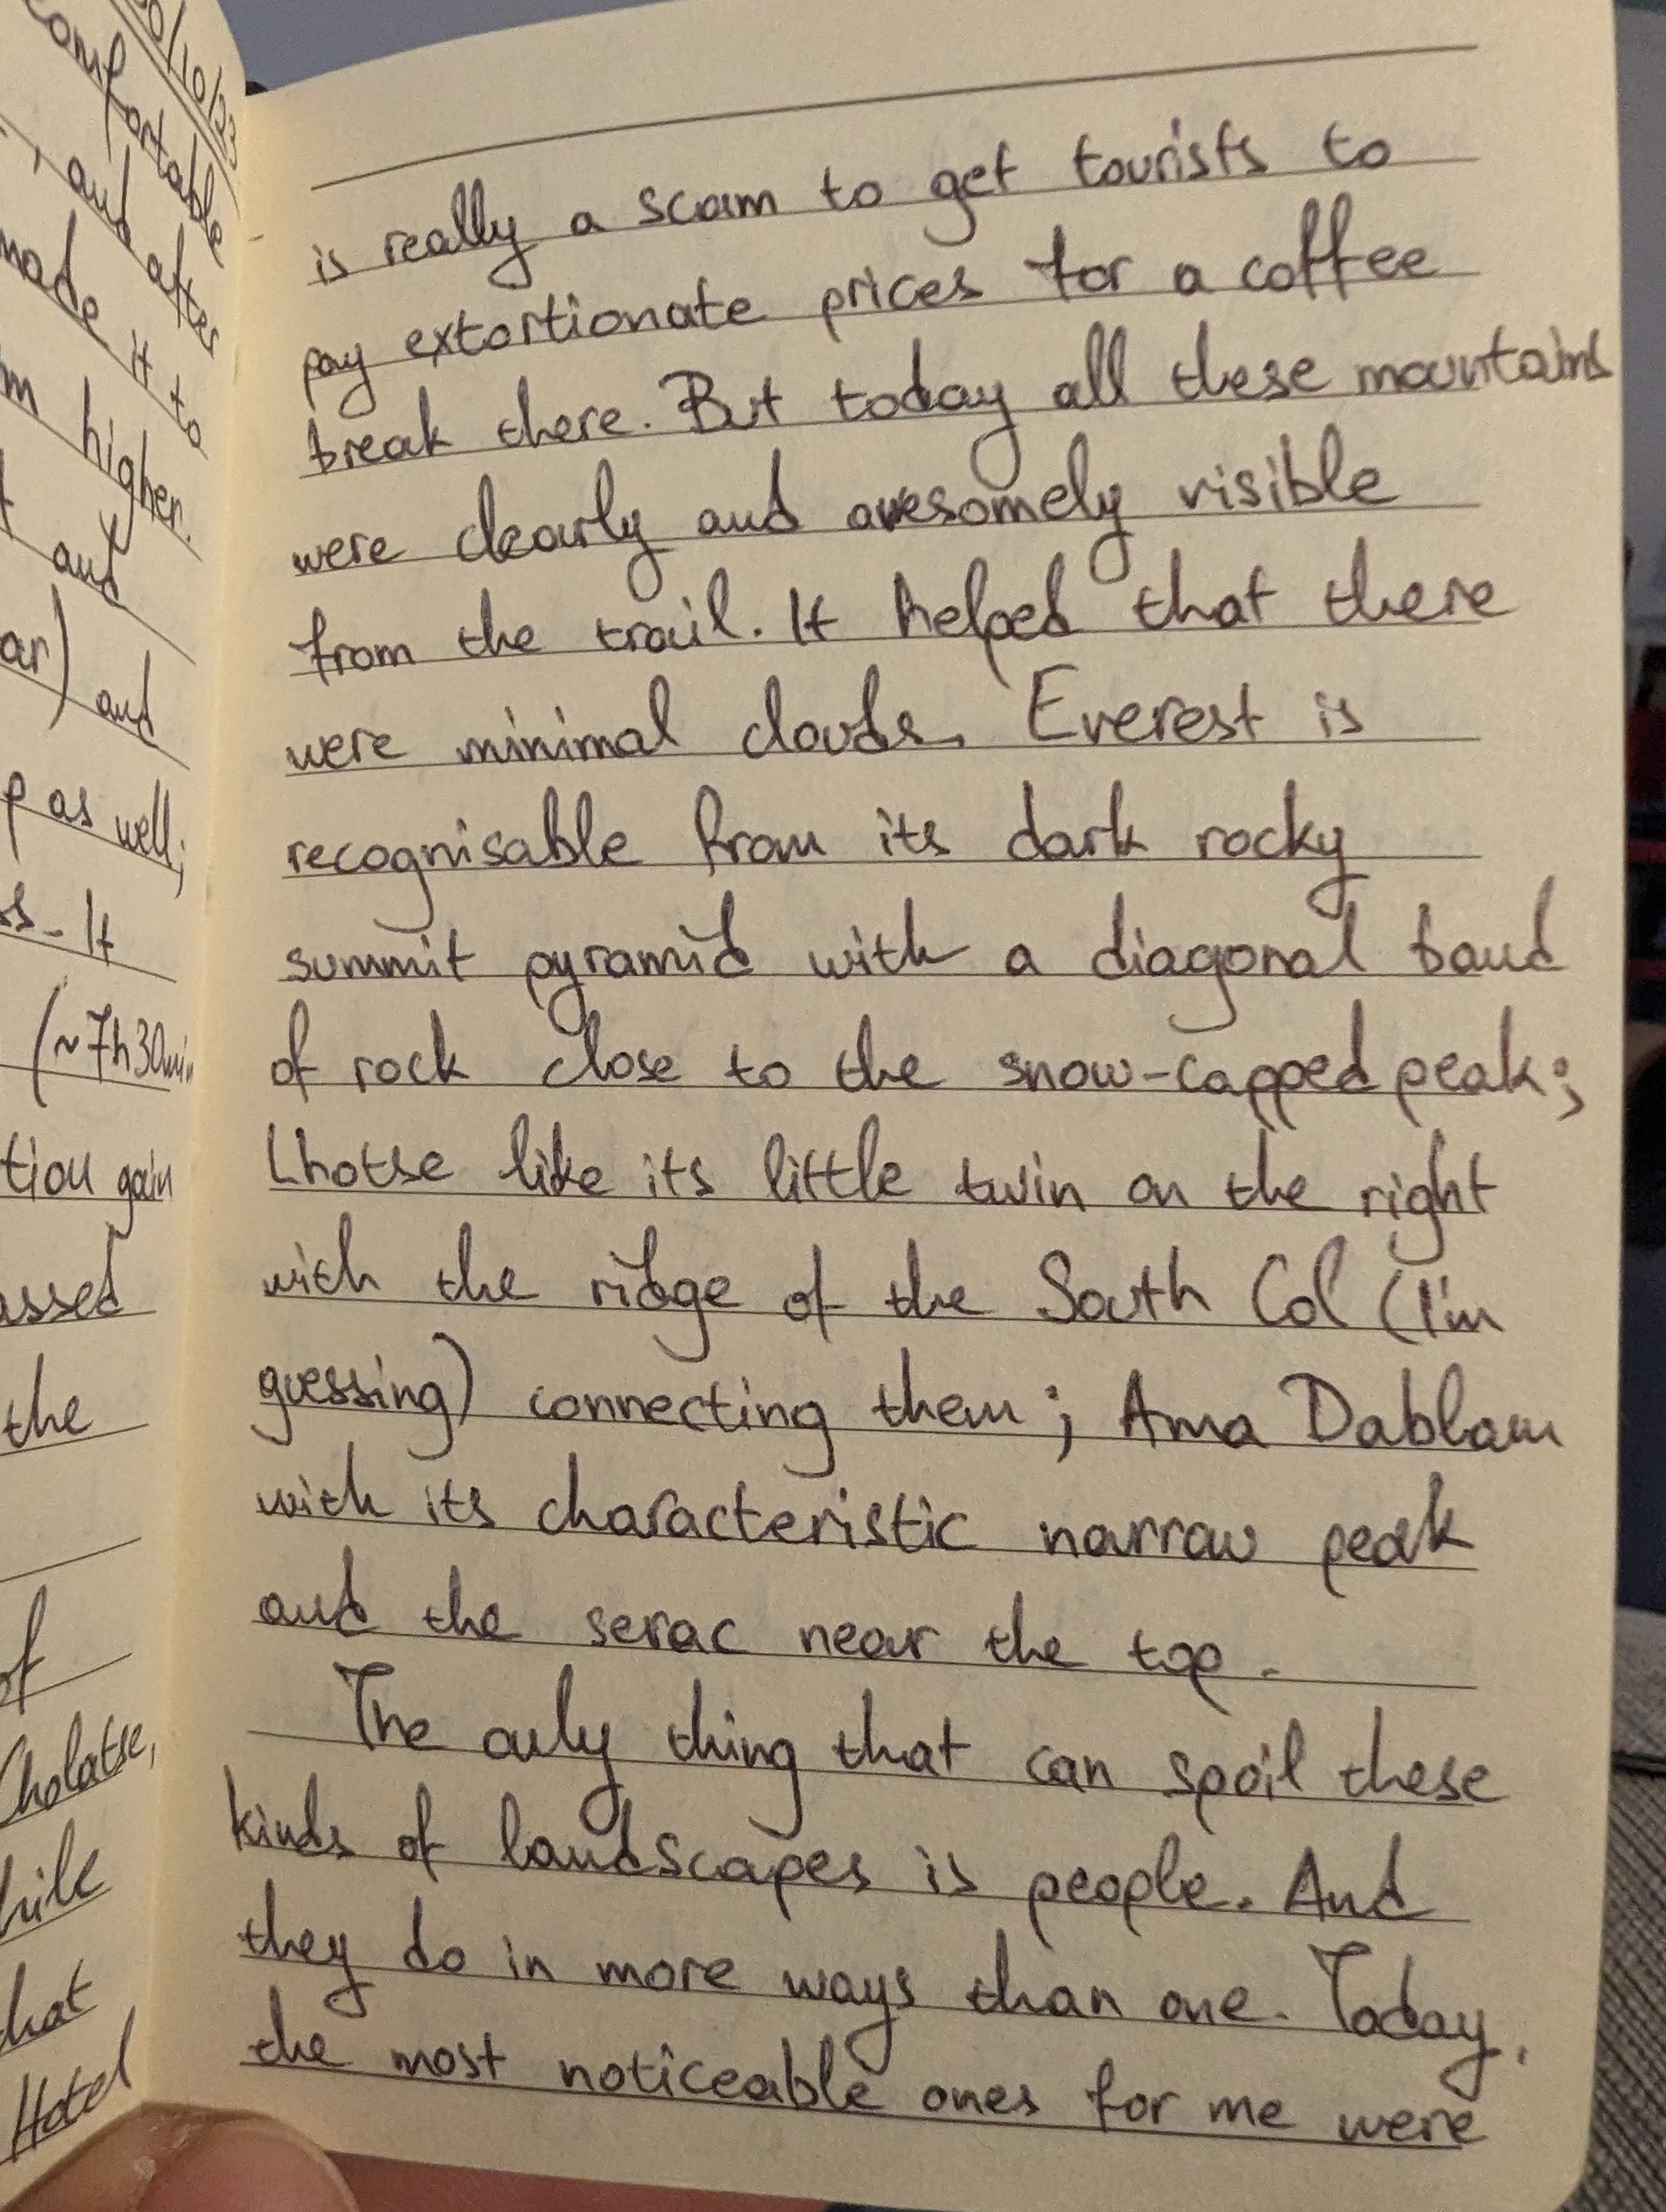 30/10/23
comfortable
, and after
made it to
m higher.
and
ar) and
p as well;
ss. It
(~7h30min
tion gain
assed
the
of
Cholatse,
hile
hat
Hotel
is really a scam to get tourists to
pay extortionate prices for a coffee
break there. But today all these mountains
were clearly and awesomely visible
from the trail. It helped that there
were minimal clouds. Everest is
recognisable from its dark rocky
summit pyramid with a diagonal band
of rock close to the snow-capped peak;
Lhotse like its little twin on the right
with the ridge of the South Col (I'm
guessing) connecting them; Ama Dablam
with its characteristic narrow peak
and the serac near the top.
The only thing that can spoil these
kinds of landscapes is people. And
they do in more ways than one. Today,
the most noticeable ones for me were